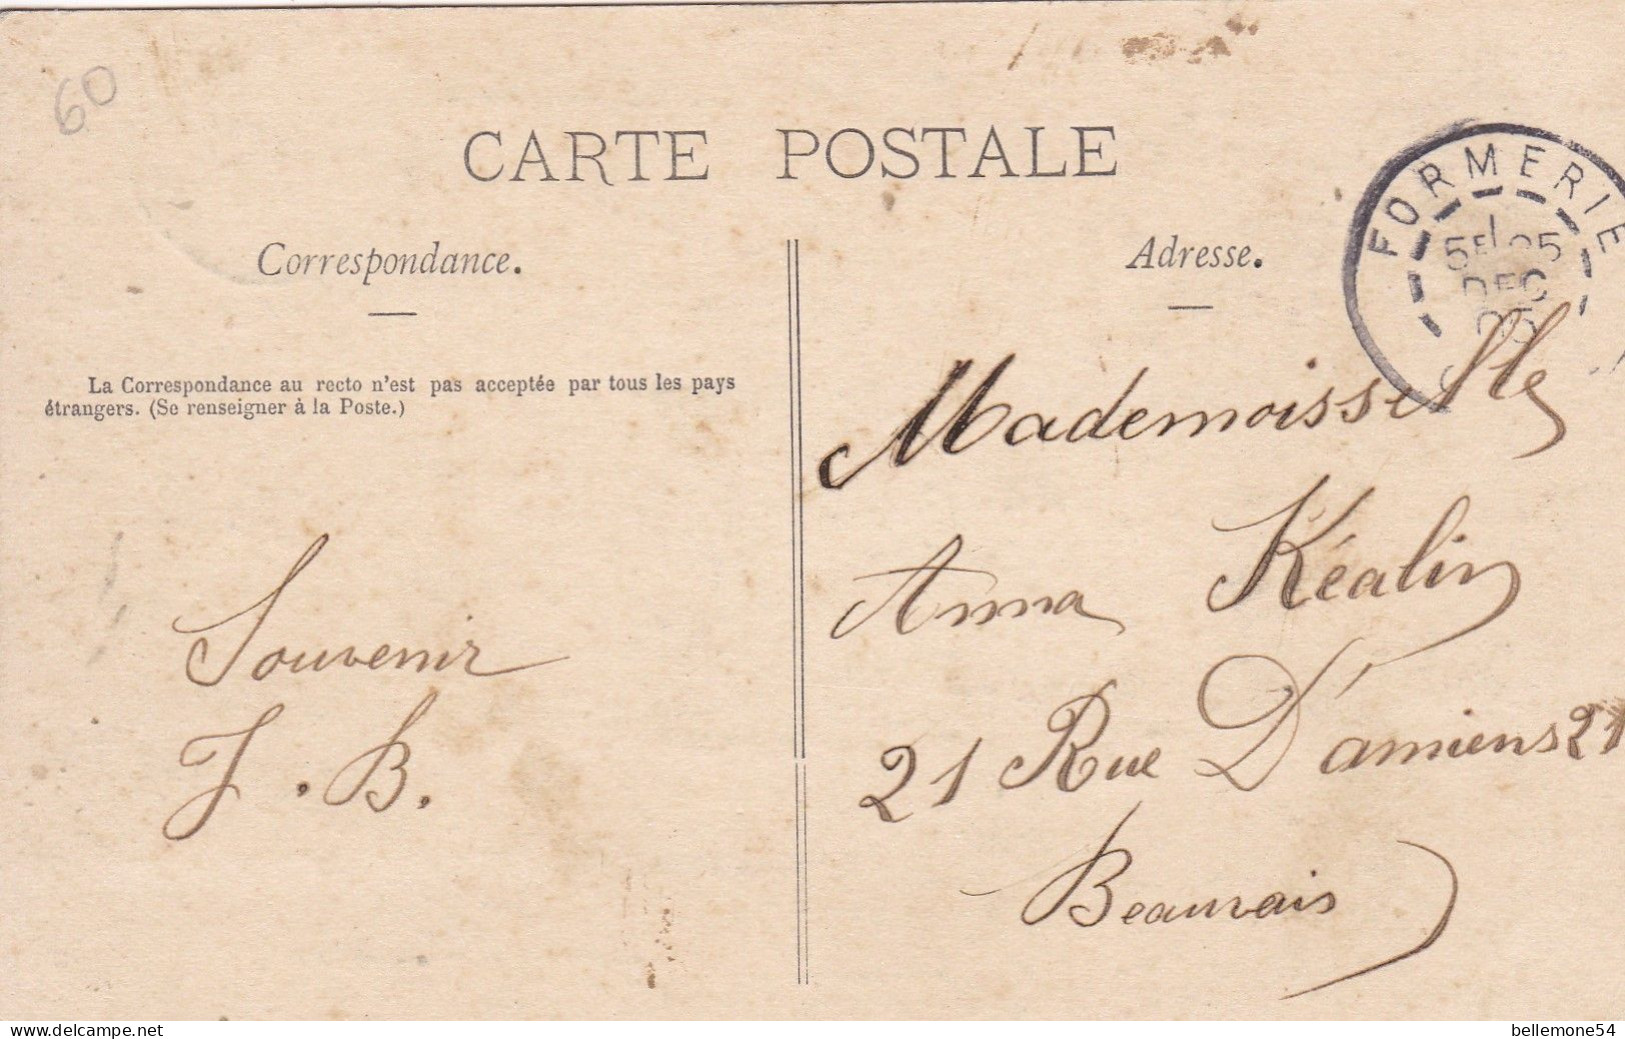 60
CARTE POSTALE
FORMERIE
DEC
Correspondance.
Adresse.
La Correspondance au recto n'est pas acceptée par tous les pays
étrangers. (Se renseigner à la Poste.)
Souvenir
J. B.
Mademoisselle
Anna Kéalin
21 Rue D'amiens 21
Beauvais
www.delcampe.net
bellemone54